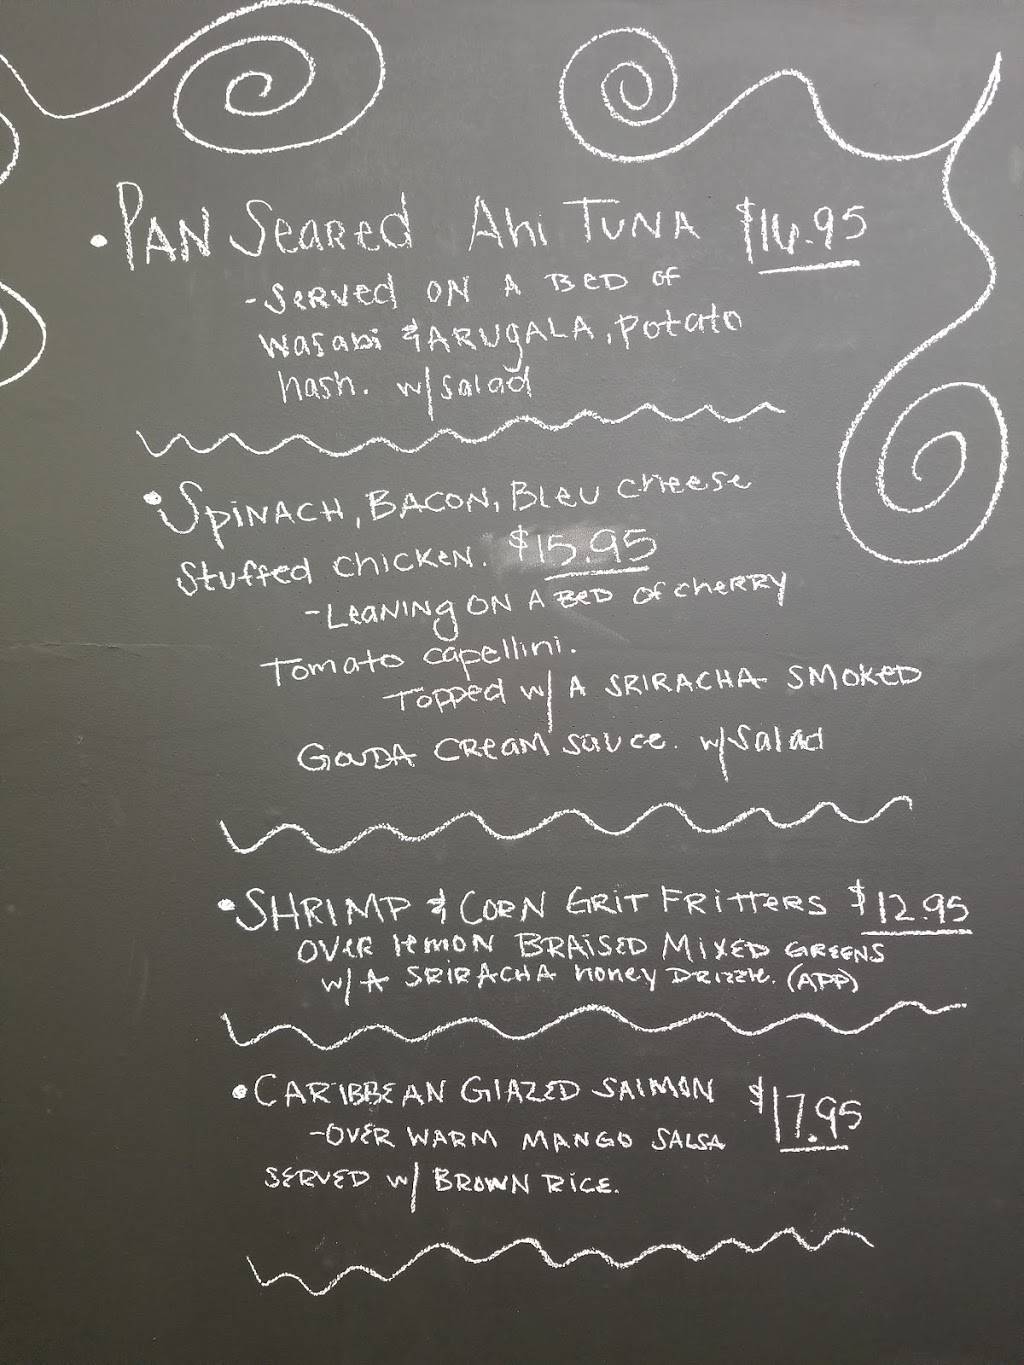 • Pan Seared Ahi Tuna $16.95
- Served on a bed of
wasabi & Arugala, potato
hash. w/salad
• Spinach, Bacon, Bleu cheese
Stuffed chicken. $15.95
- Leaning on a bed of cherry
Tomato capellini.
Topped w/ a SRIRACHA SMOKED
GOUDA CREAM sauce. w/salad
• SHRIMP & CORN GRIT FRITTERS $12.95
OVER lemon BRAISED MIXED GREENS
w/A SRIRACHA honey DRIZZLE. (APP)
• CARIBBEAN GLAZED SALMON $17.95
- OVER WARM MANGO SALSA
SERVED w/ BROWN RICE.